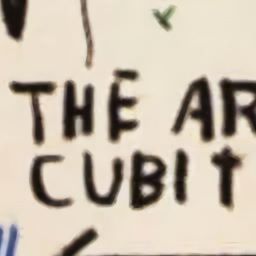 THE AR
CUBIT